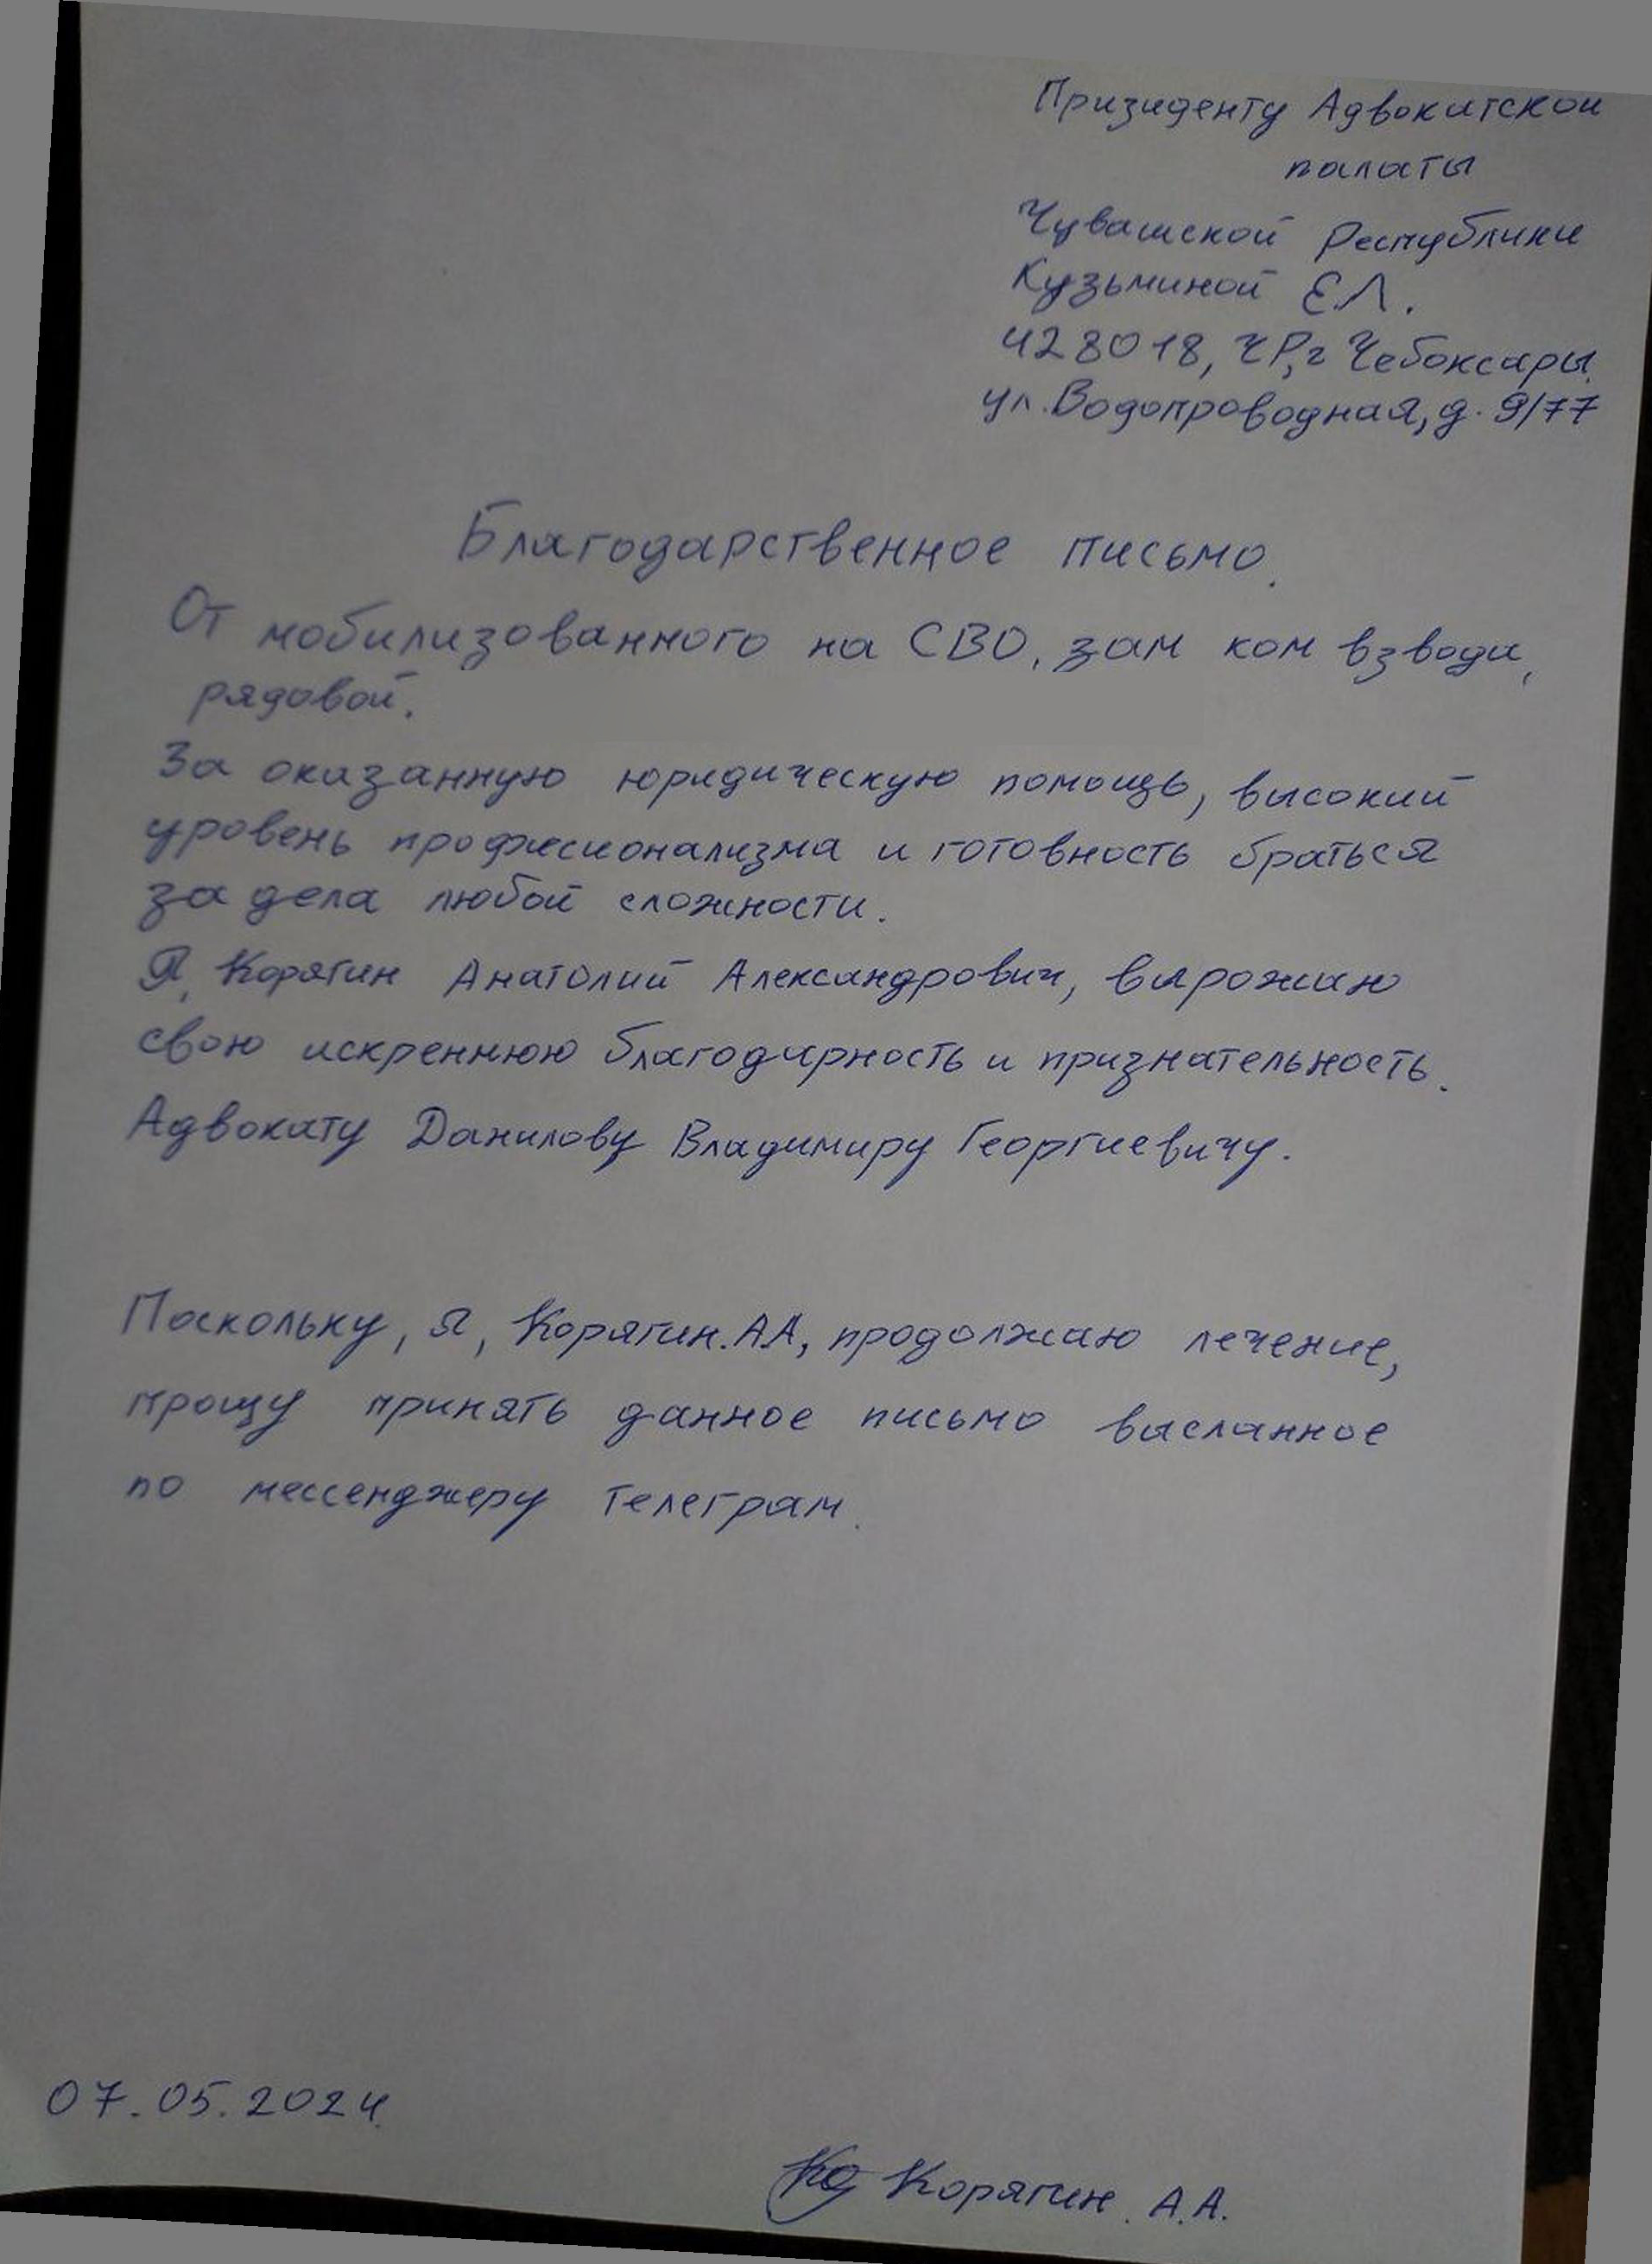 Призиденту Адвокатской
палаты
Чувашской Республики
Кузьминой Е.Л.
428018, ЧР, г Чебоксары,
ул. Водопроводная, д. 9/77
Благодарственное письмо.
От мобилизованного на СВО, зам ком взвода,
рядовой.
За оказанную юридическую помощь, высокий
уровень професионализма и готовность браться
за дела любой сложности.
Я, Корягин Анатолий Александрович, вырожаю
свою искреннюю благодарность и признательность.
Адвокату Данилову Владимиру Георгиевичу.
Поскольку, я, Корягин. А А, продолжаю лечение,
прошу принять данное письмо высланное
по мессенджеру телеграм.
07.05.2024
Корягин. А.А.